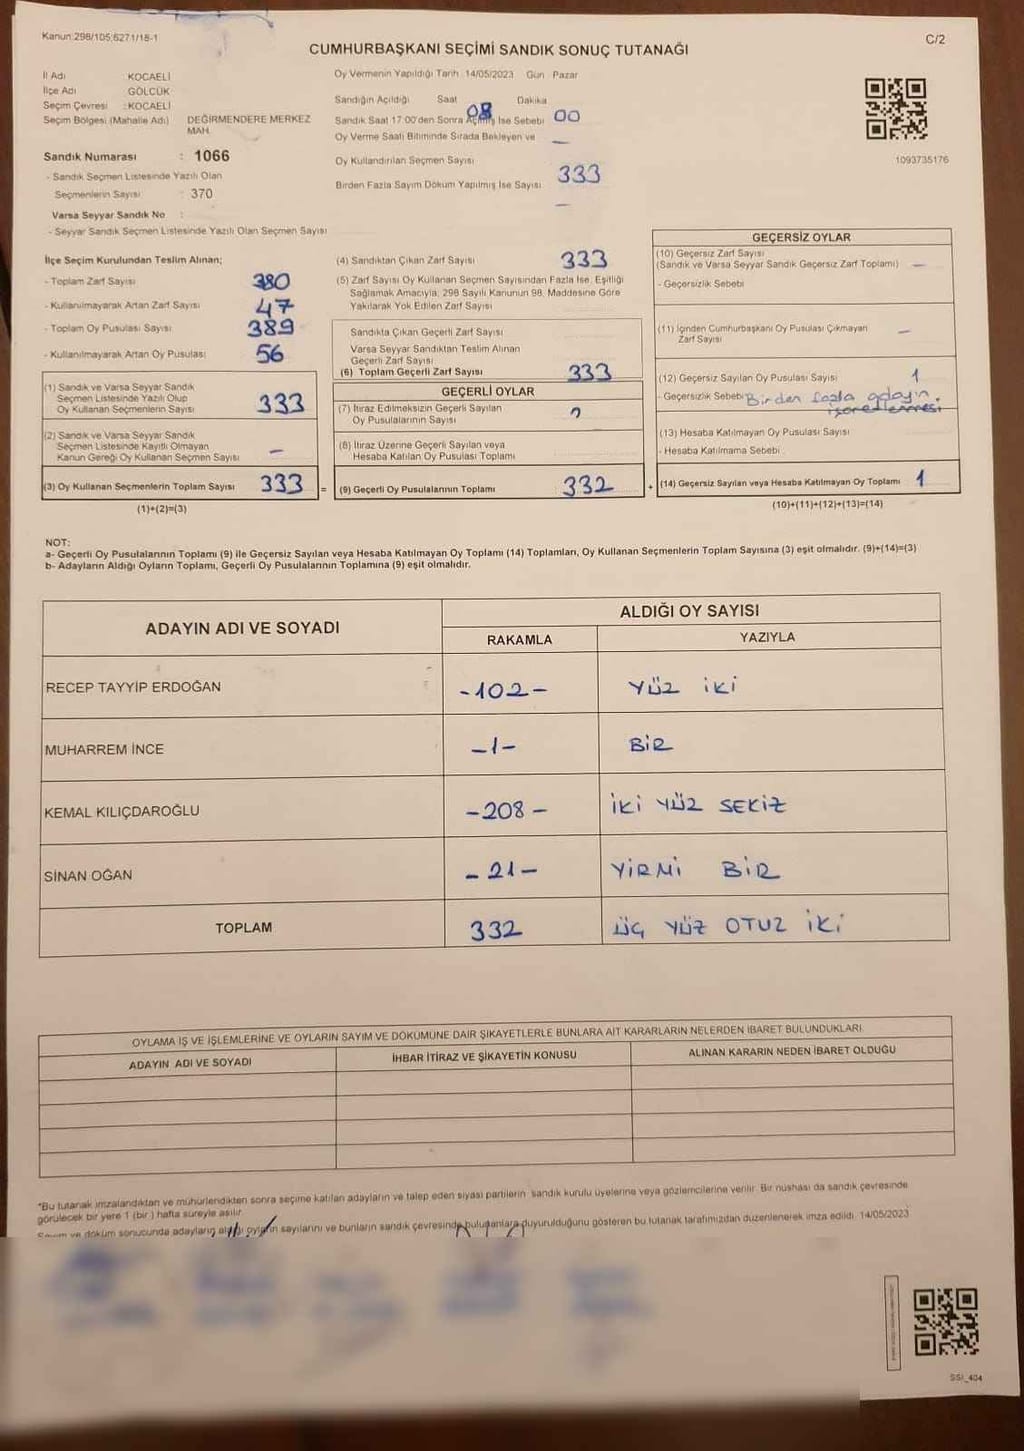 Kanun:298/105;6271/18-1
C/2
CUMHURBAŞKANI SEÇİMİ SANDIK SONUÇ TUTANAĞI
İl Adı KOCAELİ
İlçe Adı GÖLCÜK
Seçim Çevresi :KOCAELİ
Seçim Bölgesi (Mahalle Adı) DEĞİRMENDERE MERKEZ
MAH.
Sandık Numarası : 1066
- Sandık Seçmen Listesinde Yazılı Olan
Seçmenlerin Sayısı : 370
Varsa Seyyar Sandık No :
- Seyyar Sandık Seçmen Listesinde Yazılı Olan Seçmen Sayısı
Oy Vermenin Yapıldığı Tarih 14/05/2023 Gün Pazar
Sandığın Açıldığı Saat 08 Dakika 00
Sandık Saat 17:00'den Sonra Açılmış İse Sebebi
Oy Verme Saati Bitiminde Sırada Bekleyen ve —
Oy Kullandırılan Seçmen Sayısı 333
Birden Fazla Sayım Döküm Yapılmış İse Sayısı —
1093735176
İlçe Seçim Kurulundan Teslim Alınan;
- Toplam Zarf Sayısı 380
- Kullanılmayarak Artan Zarf Sayısı 47
- Toplam Oy Pusulası Sayısı 389
- Kullanılmayarak Artan Oy Pusulası 56
(1) Sandık ve Varsa Seyyar Sandık
Seçmen Listesinde Yazılı Olup
Oy Kullanan Seçmenlerin Sayısı 333
(2) Sandık ve Varsa Seyyar Sandık
Seçmen Listesinde Kayıtlı Olmayan
Kanun Gereği Oy Kullanan Seçmen Sayısı —
(3) Oy Kullanan Seçmenlerin Toplam Sayısı 333 =
(1)+(2)=(3)
(4) Sandıktan Çıkan Zarf Sayısı 333
(5) Zarf Sayısı Oy Kullanan Seçmen Sayısından Fazla İse, Eşitliği
Sağlamak Amacıyla, 298 Sayılı Kanunun 98. Maddesine Göre
Yakılarak Yok Edilen Zarf Sayısı
Sandıkta Çıkan Geçerli Zarf Sayısı
Varsa Seyyar Sandıktan Teslim Alınan
Geçerli Zarf Sayısı
(6) Toplam Geçerli Zarf Sayısı 333
GEÇERLİ OYLAR
(7) İtiraz Edilmeksizin Geçerli Sayılan
Oy Pusulalarının Sayısı
(8) İtiraz Üzerine Geçerli Sayılan veya
Hesaba Katılan Oy Pusulası Toplamı
(9) Geçerli Oy Pusulalarının Toplamı 332 +
GEÇERSİZ OYLAR
(10) Geçersiz Zarf Sayısı
(Sandık ve Varsa Seyyar Sandık Geçersiz Zarf Toplamı) —
- Geçersizlik Sebebi
(11) İçinden Cumhurbaşkanı Oy Pusulası Çıkmayan
Zarf Sayısı —
(12) Geçersiz Sayılan Oy Pusulası Sayısı 1
- Geçersizlik Sebebi Birden fazla adayın
işaretlenmesi
(13) Hesaba Katılmayan Oy Pusulası Sayısı
- Hesaba Katılmama Sebebi
(14) Geçersiz Sayılan veya Hesaba Katılmayan Oy Toplamı 1
(10)+(11)+(12)+(13)=(14)
NOT:
a- Geçerli Oy Pusulalarının Toplamı (9) ile Geçersiz Sayılan veya Hesaba Katılmayan Oy Toplamı (14) Toplamları, Oy Kullanan Seçmenlerin Toplam Sayısına (3) eşit olmalıdır. (9)+(14)=(3)
b- Adayların Aldığı Oyların Toplamı, Geçerli Oy Pusulalarının Toplamına (9) eşit olmalıdır.
ADAYIN ADI VE SOYADI ALDIĞI OY SAYISI
RAKAMLA YAZIYLA
RECEP TAYYİP ERDOĞAN -102- YÜZ İKİ
MUHARREM İNCE -1- BİR
KEMAL KILIÇDAROĞLU -208- İKİ YÜZ SEKİZ
SİNAN OĞAN -21- YİRMİ BİR
TOPLAM 332 ÜÇ YÜZ OTUZ İKİ
OYLAMA İŞ VE İŞLEMLERİNE VE OYLARIN SAYIM VE DÖKÜMÜNE DAİR ŞİKAYETLERLE BUNLARA AİT KARARLARIN NELERDEN İBARET BULUNDUKLARI
ADAYIN ADI VE SOYADI İHBAR İTİRAZ VE ŞİKAYETİN KONUSU ALINAN KARARIN NEDEN İBARET OLDUĞU
*Bu tutanak imzalandıktan ve mühürlendikten sonra seçime katılan adayların ve talep eden siyasi partilerin sandık kurulu üyelerine veya gözlemcilerine verilir. Bir nüshası da sandık çevresinde
görülecek bir yere 1 (bir) hafta süreyle asılır.
Sayım ve döküm sonucunda adayların aldığı oyların sayılarını ve bunların sandık çevresinde bulunanlara duyurulduğunu gösteren bu tutanak tarafımızdan düzenlenerek imza edildi. 14/05/2023
SSI_404